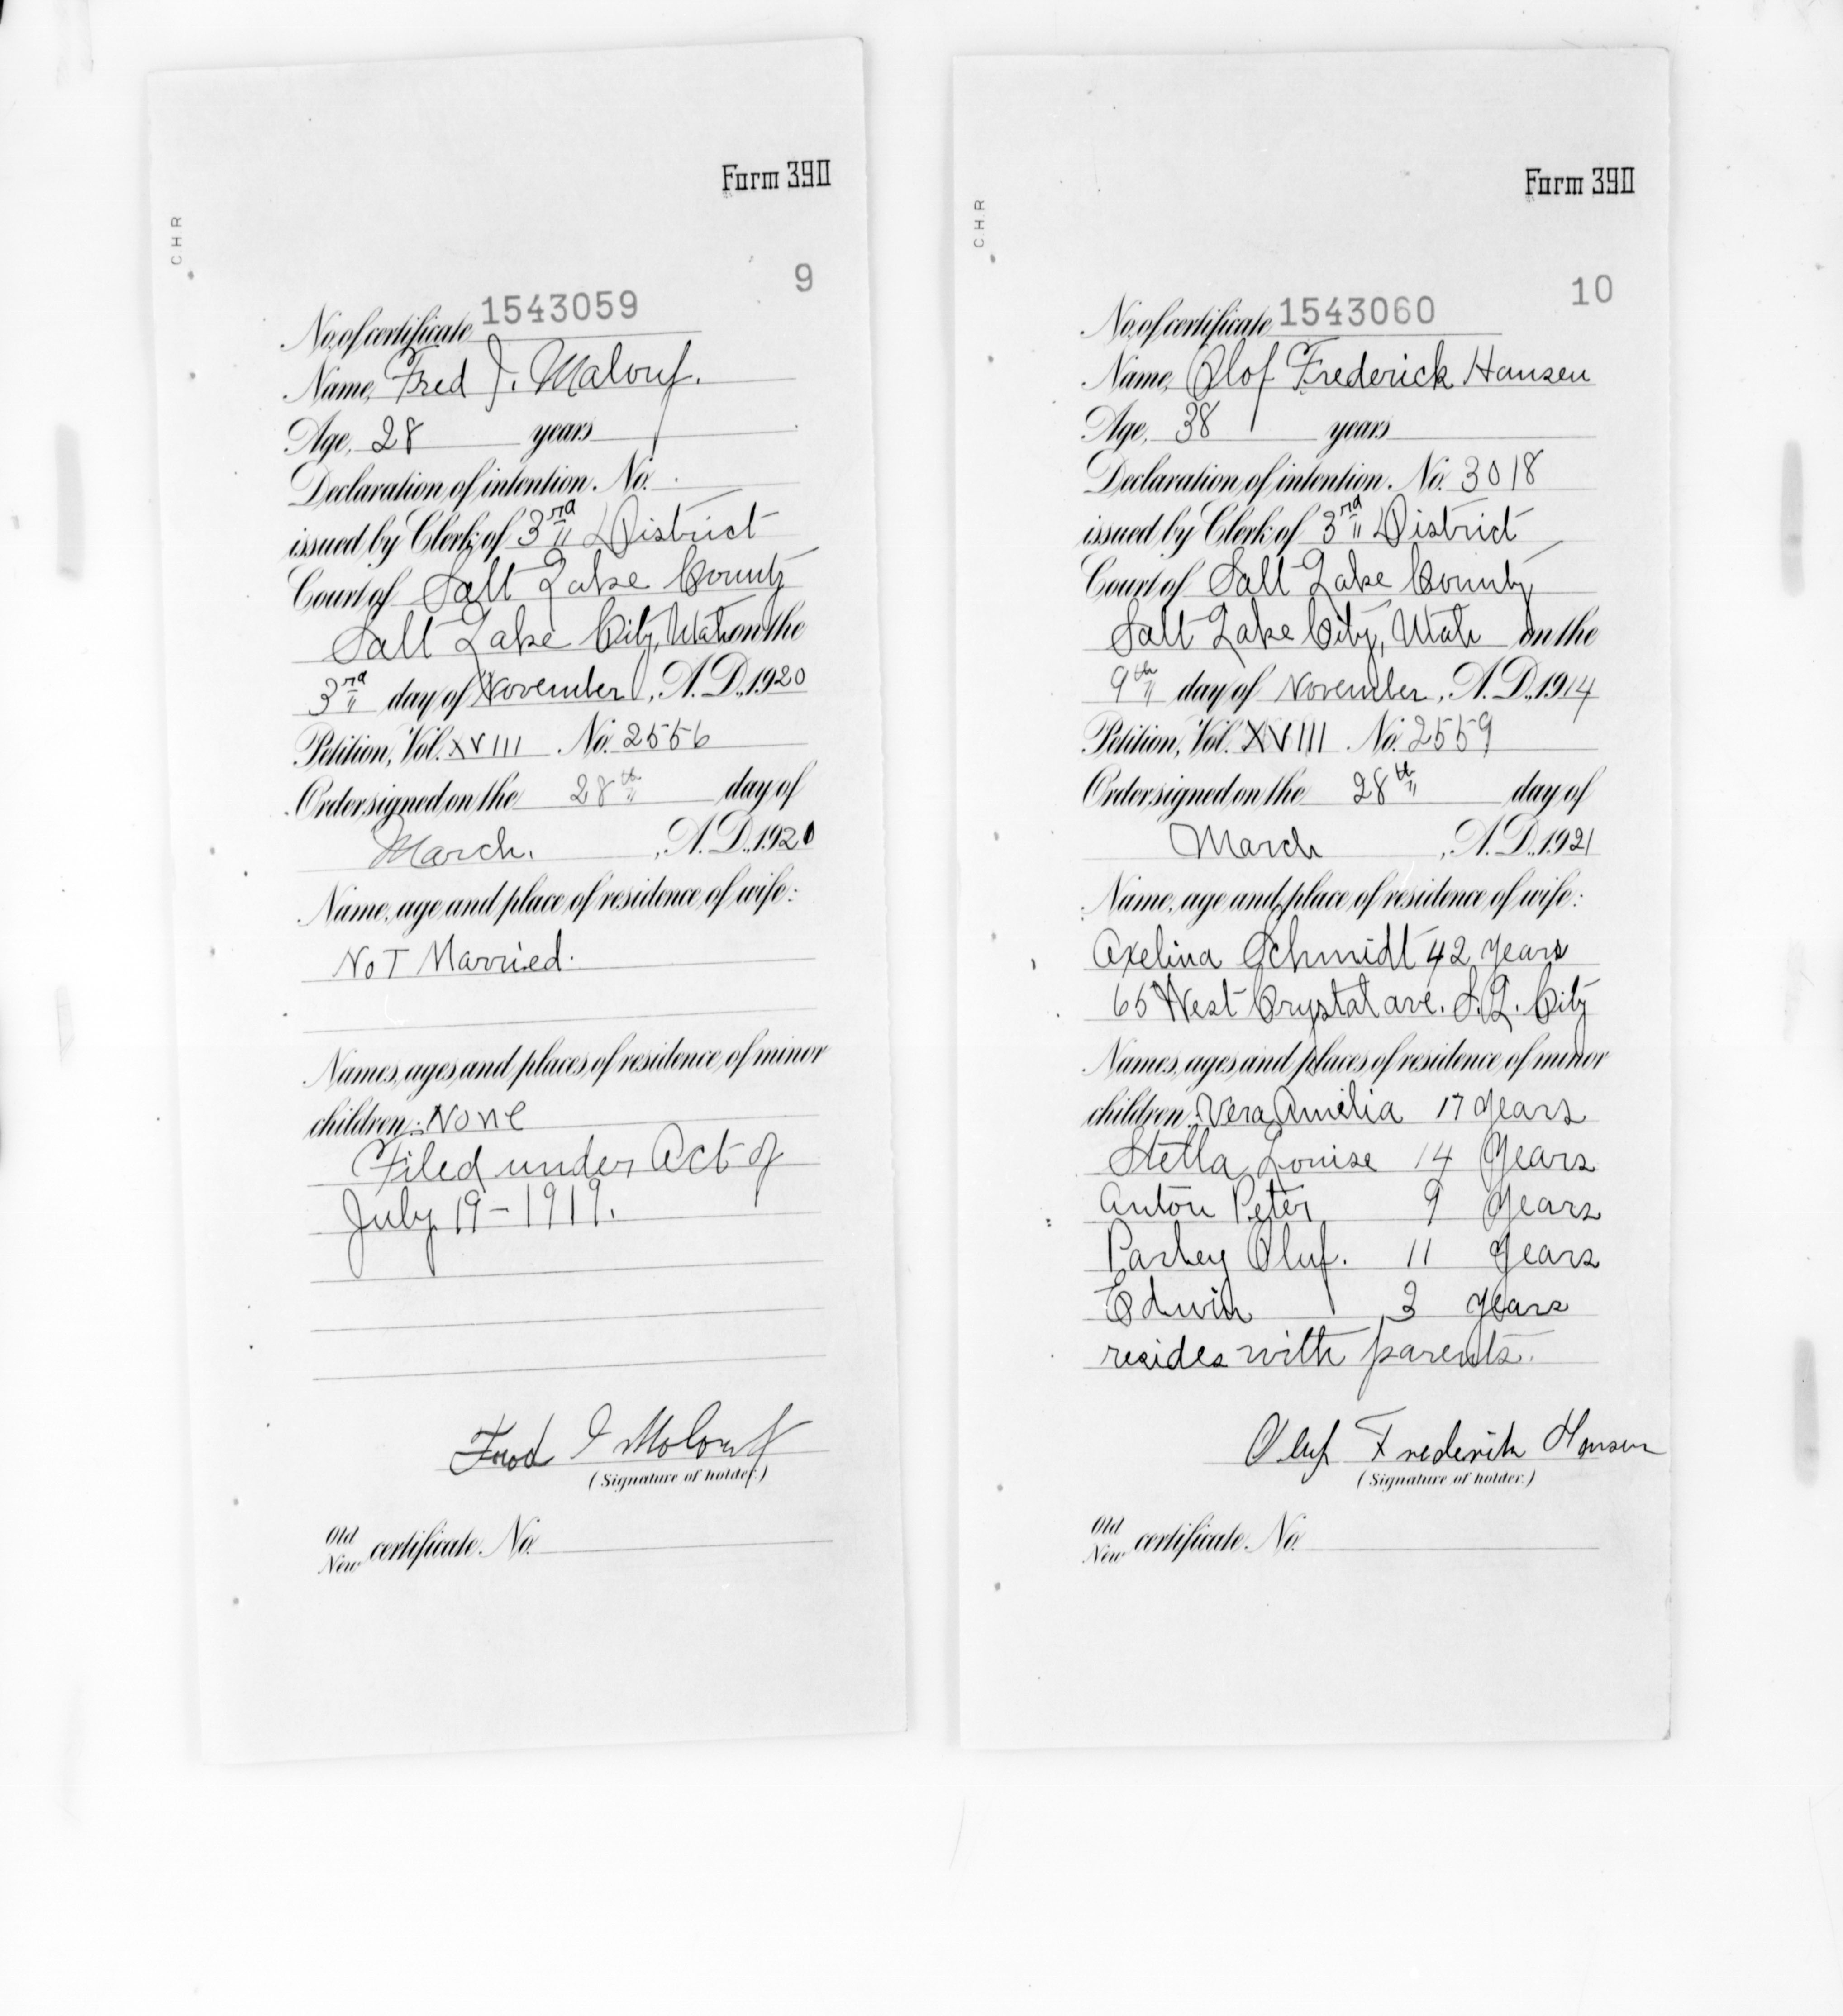 Form 390
C.H.R
9
No. of certificate 1543059
Name, Fred J. Malouf.
Age, 28 years
Declaration of intention. No.
issued by Clerk of 3rd District
Court of Salt Lake County
Salt Lake City, Utah on the
3rd day of November, A. D., 1920
Petition, Vol. XVIII No. 2556
Order signed on the 28th day of
March. , A. D., 1921
Name, age and place of residence of wife:
Not Married.
Names, ages and places of residence of minor
children: None
Filed under Act of
July 19-1919.
Fred J Malouf
(Signature of holder.)
Old
New certificate. No.
Form 390
C.H.R
10
No. of certificate 1543060
Name, Olof Frederick Hansen
Age, 38 years
Declaration of intention. No. 3018
issued by Clerk of 3rd District
Court of Salt Lake County
Salt Lake City, Utah on the
9th day of November, A. D., 1914
Petition, Vol. XVIII No. 2559
Order signed on the 28th day of
March , A. D., 1921
Name, age and place of residence of wife:
Axelina Schmidt 42 years
65 West Crystal ave. S. L. City
Names, ages and places of residence of minor
children: Vera Amelia 17 years
Stella Louise 14 years
Anton Peter 9 years
Parley Oluf. 11 years
Edwin 3 years
resides with parents.
Oluf Frederik Hansen
(Signature of holder.)
Old
New certificate. No.